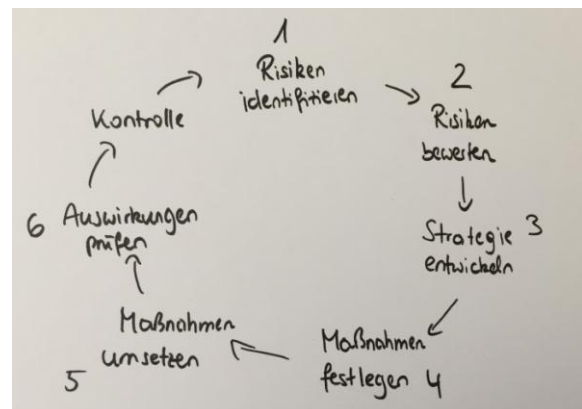 1
Risiken
identifizieren
2
Risiken
bewerten
Strategie 3
entwickeln
Maßnahmen
festlegen 4
Maßnahmen
umsetzen
5
6 Auswirkungen
prüfen
Kontrolle